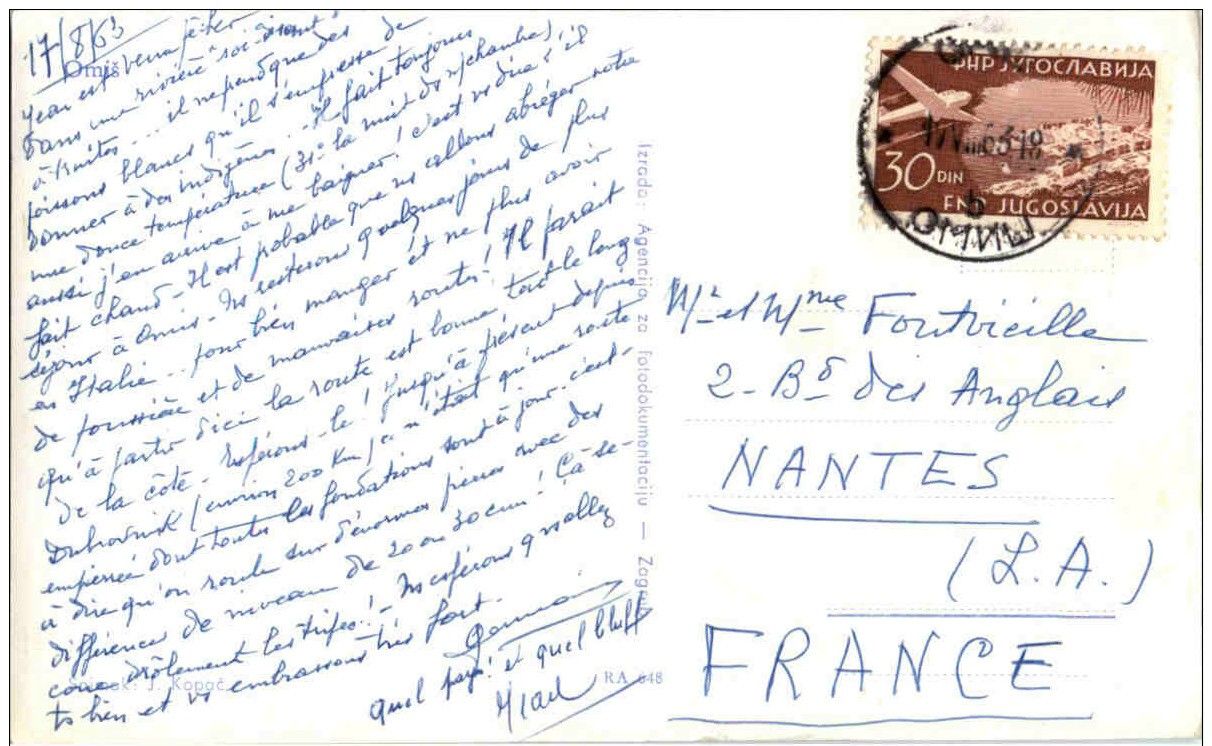 17/8/63
Omiš
Jean est venu pêcher
dans une rivière soi-disant
à truites... il ne prend que des
poissons blancs qu'il s'empresse de
donner à des indigènes. Il fait toujours
une douce température (31° la nuit ds n/chambre),
aussi j'en arrive à me baigner! c'est vs dire s'il
fait chaud - Il est probable que ns allons abréger notre
séjour à Omis - Ns resterons quelques jours de plus
en Italie.. pour bien manger et ne plus avoir
de poussière et de mauvaises routes! Il paraît
qu'à partir d'ici la route est bonne tout le long
de la côte - Espérons-le! Jusqu'à présent depuis
Dubrovnik (environ 200 Km) ce n'était qu'une route
empierrée dont toutes les fondations sont à jour. c'est-
à dire qu'on roule sur d'énormes pierres avec des
différences de niveau de 20 ou 30 cm! Ça se-
coue drôlement les tripes! - Ns espérons q vs allez
ts bien et vs embrassons très fort.
Germaine
quel pays! et quel bluff
Jean
Snimek: J. Kopač
RA 648
Izrada: Agencija za fotodokumentaciju — Zagreb
ФНР ЈУГОСЛАВИЈА
30 DIN
FNR JUGOSLAVIJA
17.VIII.63-19
b
ОМИШ
Mr et Mme Fontvieille
2 - Bd des Anglais
NANTES
(L.A.)
FRANCE